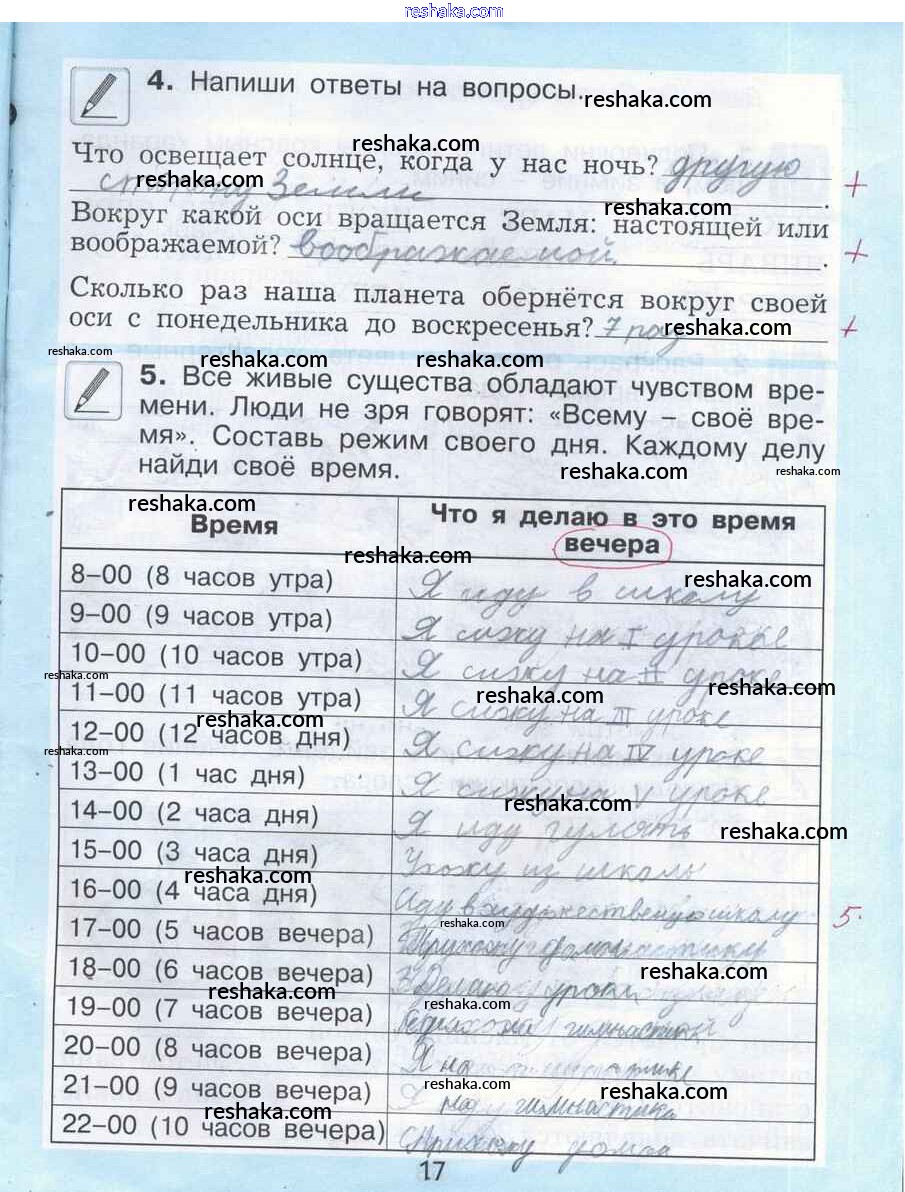 reshaka.com
4. Напиши ответы на вопросы.
reshaka.com
reshaka.com
Что освещает солнце, когда у нас ночь? другую
сторону Земли.
reshaka.com
Вокруг какой оси вращается Земля: настоящей или
воображаемой? воображаемой.
Сколько раз наша планета обернётся вокруг своей
оси с понедельника до воскресенья? 7 раз
reshaka.com
reshaka.com
reshaka.com
reshaka.com
5. Все живые существа обладают чувством вре-
мени. Люди не зря говорят: «Всему – своё вре-
мя». Составь режим своего дня. Каждому делу
найди своё время.
reshaka.com
reshaka.com
reshaka.com
Время
Что я делаю в это время
вечера
reshaka.com
reshaka.com
8–00 (8 часов утра) Я иду в школу
9–00 (9 часов утра) Я сижу на I уроке
10–00 (10 часов утра) Я сижу на II уроке
reshaka.com
reshaka.com
11–00 (11 часов утра) Я сижу на III уроке
reshaka.com
reshaka.com
12–00 (12 часов дня) Я сижу на IV уроке
reshaka.com
13–00 (1 час дня) Я сижу на V уроке
reshaka.com
14–00 (2 часа дня) Я иду гулять
reshaka.com
15–00 (3 часа дня) Ухожу из школы
reshaka.com
16–00 (4 часа дня) Иду в художественную школу
5.
reshaka.com
17–00 (5 часов вечера) Прихожу домой
18–00 (6 часов вечера) Делаю уроки
reshaka.com
reshaka.com
19–00 (7 часов вечера) на гимнастику
reshaka.com
20–00 (8 часов вечера) Я на
21–00 (9 часов вечера) Я на гимнастике
reshaka.com
reshaka.com
reshaka.com
22–00 (10 часов вечера) Прихожу домой
17